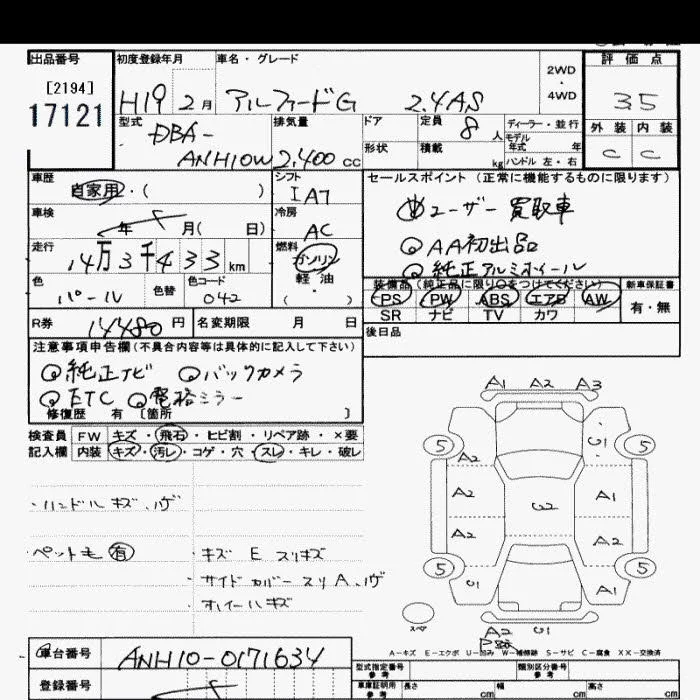 出品番号 初度登録年月 車名・グレード 2WD・4WD 評価点
[2194]
17121
H19 2月 アルファードG 2.4AS
35
型式 DBA-ANH10W
排気量 2,400 cc
ドア 定員 8人 ディーラー・並行
形状 積載 kg モデル年式 年 ハンドル 左・右
外装 内装
C C
車歴 自家用・( )
シフト IA7
車検 年 月( 日)
冷房 AC
走行 14万3千433km
燃料 ガソリン 軽油 ( )
色 パール 色替 色コード 042
R券 14480円 名変期限 月 日
セールスポイント (正常に機能するものに限ります)
ユーザー買取車
◎AA初出品
◎純正アルミホイール
装備品(純正品に限り○をつけてください) 新車保証書
PS PW ABS エアB AW 有・無
SR ナビ TV カワ
後日品
注意事項申告欄(不具合内容等は具体的に記入して下さい)
◎純正ナビ ◎バックカメラ
◎ETC ◎電格ミラー
修復歴 有 [箇所 ]
検査員 FW キズ・飛石・ヒビ割・リペア跡・×要
記入欄 内装 キズ・汚レ・コゲ・穴・スレ・キレ・破レ
・ハンドルキズ、ハゲ
ペット毛 有
・キズ E スリキズ
・サイドカバースリA、ハゲ
・ホイールキズ
A1 A2 A3
5 U1 5
A2
A2 U2 A1
A2 A2
5 U1 A1 5
スペア
A2 U1
A-キズ E-エクボ U-凹み W-補修跡 S-サビ C-腐食 XX-交換済
車台番号 ANH10-0171634
登録番号
型式指定番号 参考 類別区分番号 参考
車庫証明用 参考 長さ cm 幅 cm 高さ cm